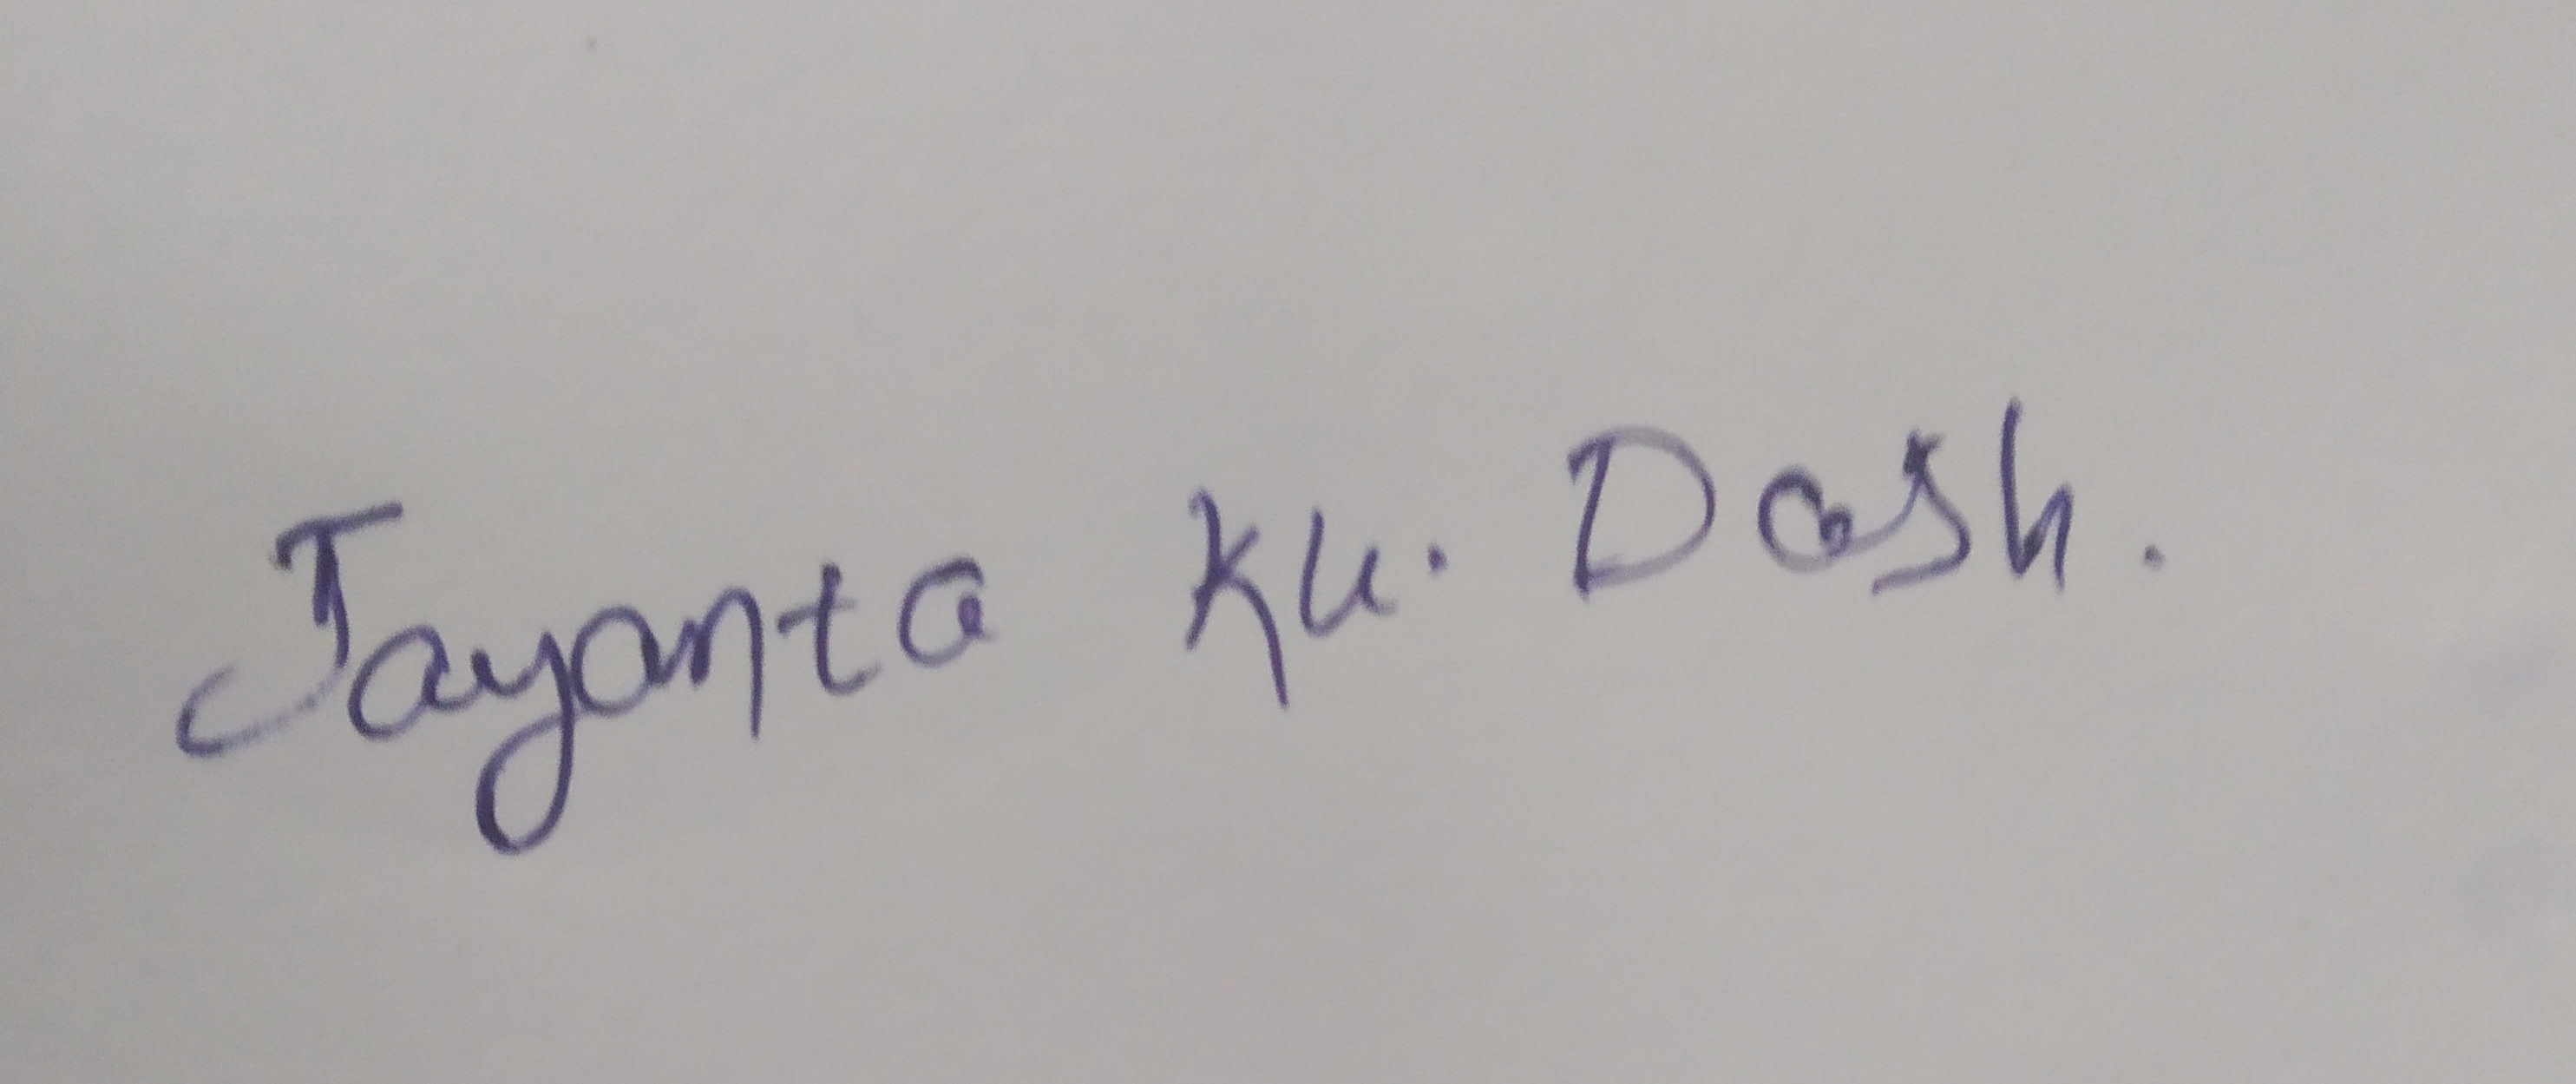 Jayanta Ku. Dash.